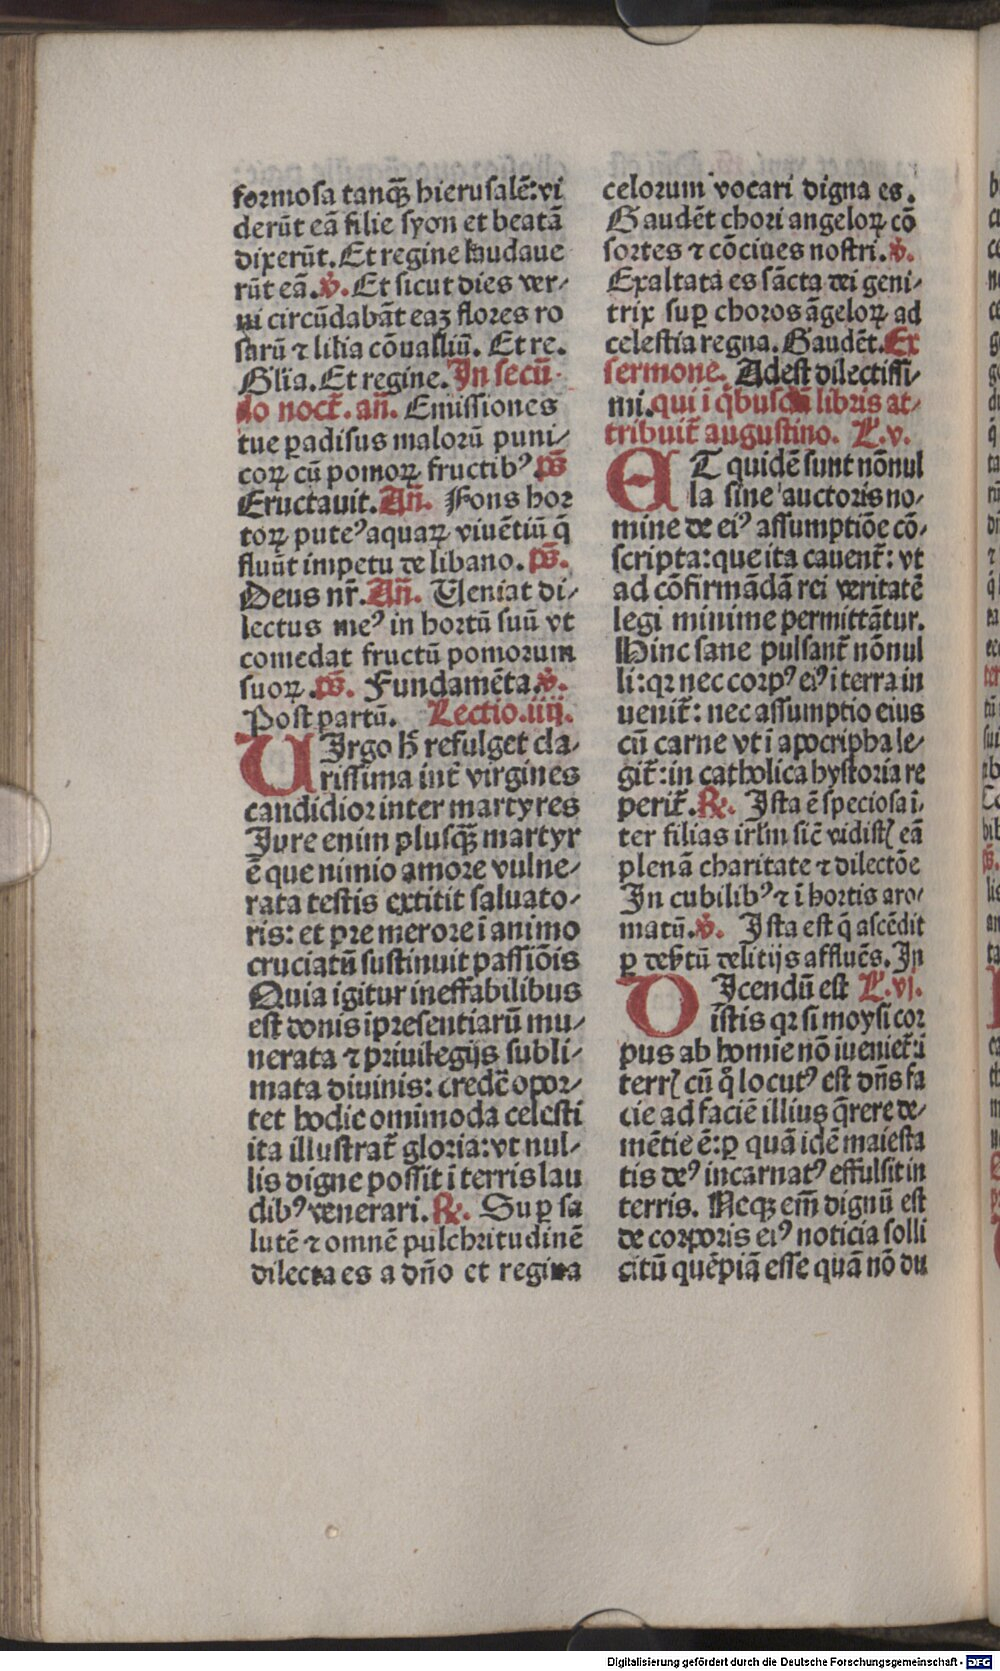 formosa tanqȝ̄ hierusalē: vi
derūt eā filie syon et beatā
dixerūt. Et regine laudaue
rūt eā. ℣. Et sicut dies ver⸗
ni circūdabāt eaȝ flores ro
sarū ⁊ lilia cōualliū. Et re.
Glīa. Et regine. In secū⸗
do noct̄. añ. Emissiones
tue ꝑadisus malorū puni⸗
coꝝ cū pomoꝝ fructibꝰ. ps̄
Eructauit. Añ. Fons hor
toꝝ puteꝰ aquaꝝ viuētiū q̄
fluūt impetu de libano. ps̄.
Deus nr̄. Añ. Ueniat di⸗
lectus meꝰ in hortū suū vt
comedat fructū pomorum
suoꝝ. ps̄. Fundamēta. ℣.
Post partū. Lectio. iiij.
UIrgo h̄ refulget cla⸗
rissima int̄ virgines
candidior inter martyres
Jure enim plusqȝ̄ martyr
ē que nimio amore vulne⸗
rata testis extitit saluato⸗
ris: et pre merore ī animo
cruciatū sustinuit passiōis
Quia igitur ineffabilibus
est donis īpresentiarū mu⸗
nerata ⁊ priuilegijs subli⸗
mata diuinis: credē opor⸗
tet hodie omimoda celesti
ita illustrat̄ gloria: vt nul⸗
lis digne possit ī terris lau
dibꝰ venerari. ℟. Suꝑ sa
lutē ⁊ omnē pulchritudinē
dilecta es a dño et regina
celorum vocari digna es.
Gaudēt chori angeloꝝ cō
sortes ⁊ cōciues nostri. ℣.
Exaltata es sācta dei geni⸗
trix suꝑ choros āgeloꝝ ad
celestia regna. Gaudēt. Ex
sermone. Adest dilectissi⸗
mi. qui ī q̇busdā libris at⸗
tribuit̄ augustino. L. v.
AT quidē sunt nōnul
la sine auctoris no⸗
mine de eiꝰ assumptiōe cō⸗
scripta: que ita cauent̄: vt
ad cōfirmādā rei veritatē
legi minime permittātur.
Hinc sane pulsant̄ nōnul
li: qꝛ nec corpꝰ eiꝰ ī terra in
uenit̄: nec assumptio eius
cū carne vt ī apocripha le⸗
git̄: in catholica hystoria re
perit̄. ℟. Ista ē speciosa ī⸗
ter filias irl̄m sic̄ vidistꝭ eā
plenā charitate ⁊ dilectōe
In cubilibꝰ ⁊ ī hortis aro⸗
matū. ℣. Ista est q̄ ascēdit
ꝑ deẜtū delitijs affluēs. In
DIcendū est L. vj.
istis qꝛ si moysi cor
pus ab homie nō īueniet̄: ī
terrꝭ cū q̊ locutꝰ est dn̄s fa
cie ad faciē illius q̄rere de⸗
mētie ē: ꝑ quā idē maiesta
tis deꝰ incarnatꝰ effulsit in
terris. Neqȝ em̄ dignū est
de corporis eiꝰ noticia solli
citū quēpiā esse quā nō du
Digitalisierung gefördert durch die Deutsche Forschungsgemeinschaft - DFG